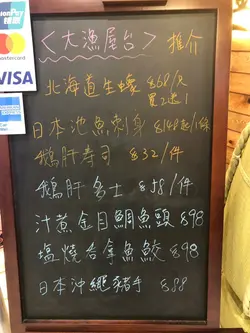 UnionPay
银联
mastercard
VISA
<大漁屋台> 推介
北海道生蠔 $68/只
買2送1
日本池魚刺身 $148起/1條
鵝肝壽司 $32/件
鵝肝多士 $58/件
汁煮金目鯛魚頭 $98
塩燒合拿魚鮫 $98
日本沖繩豬手 $88